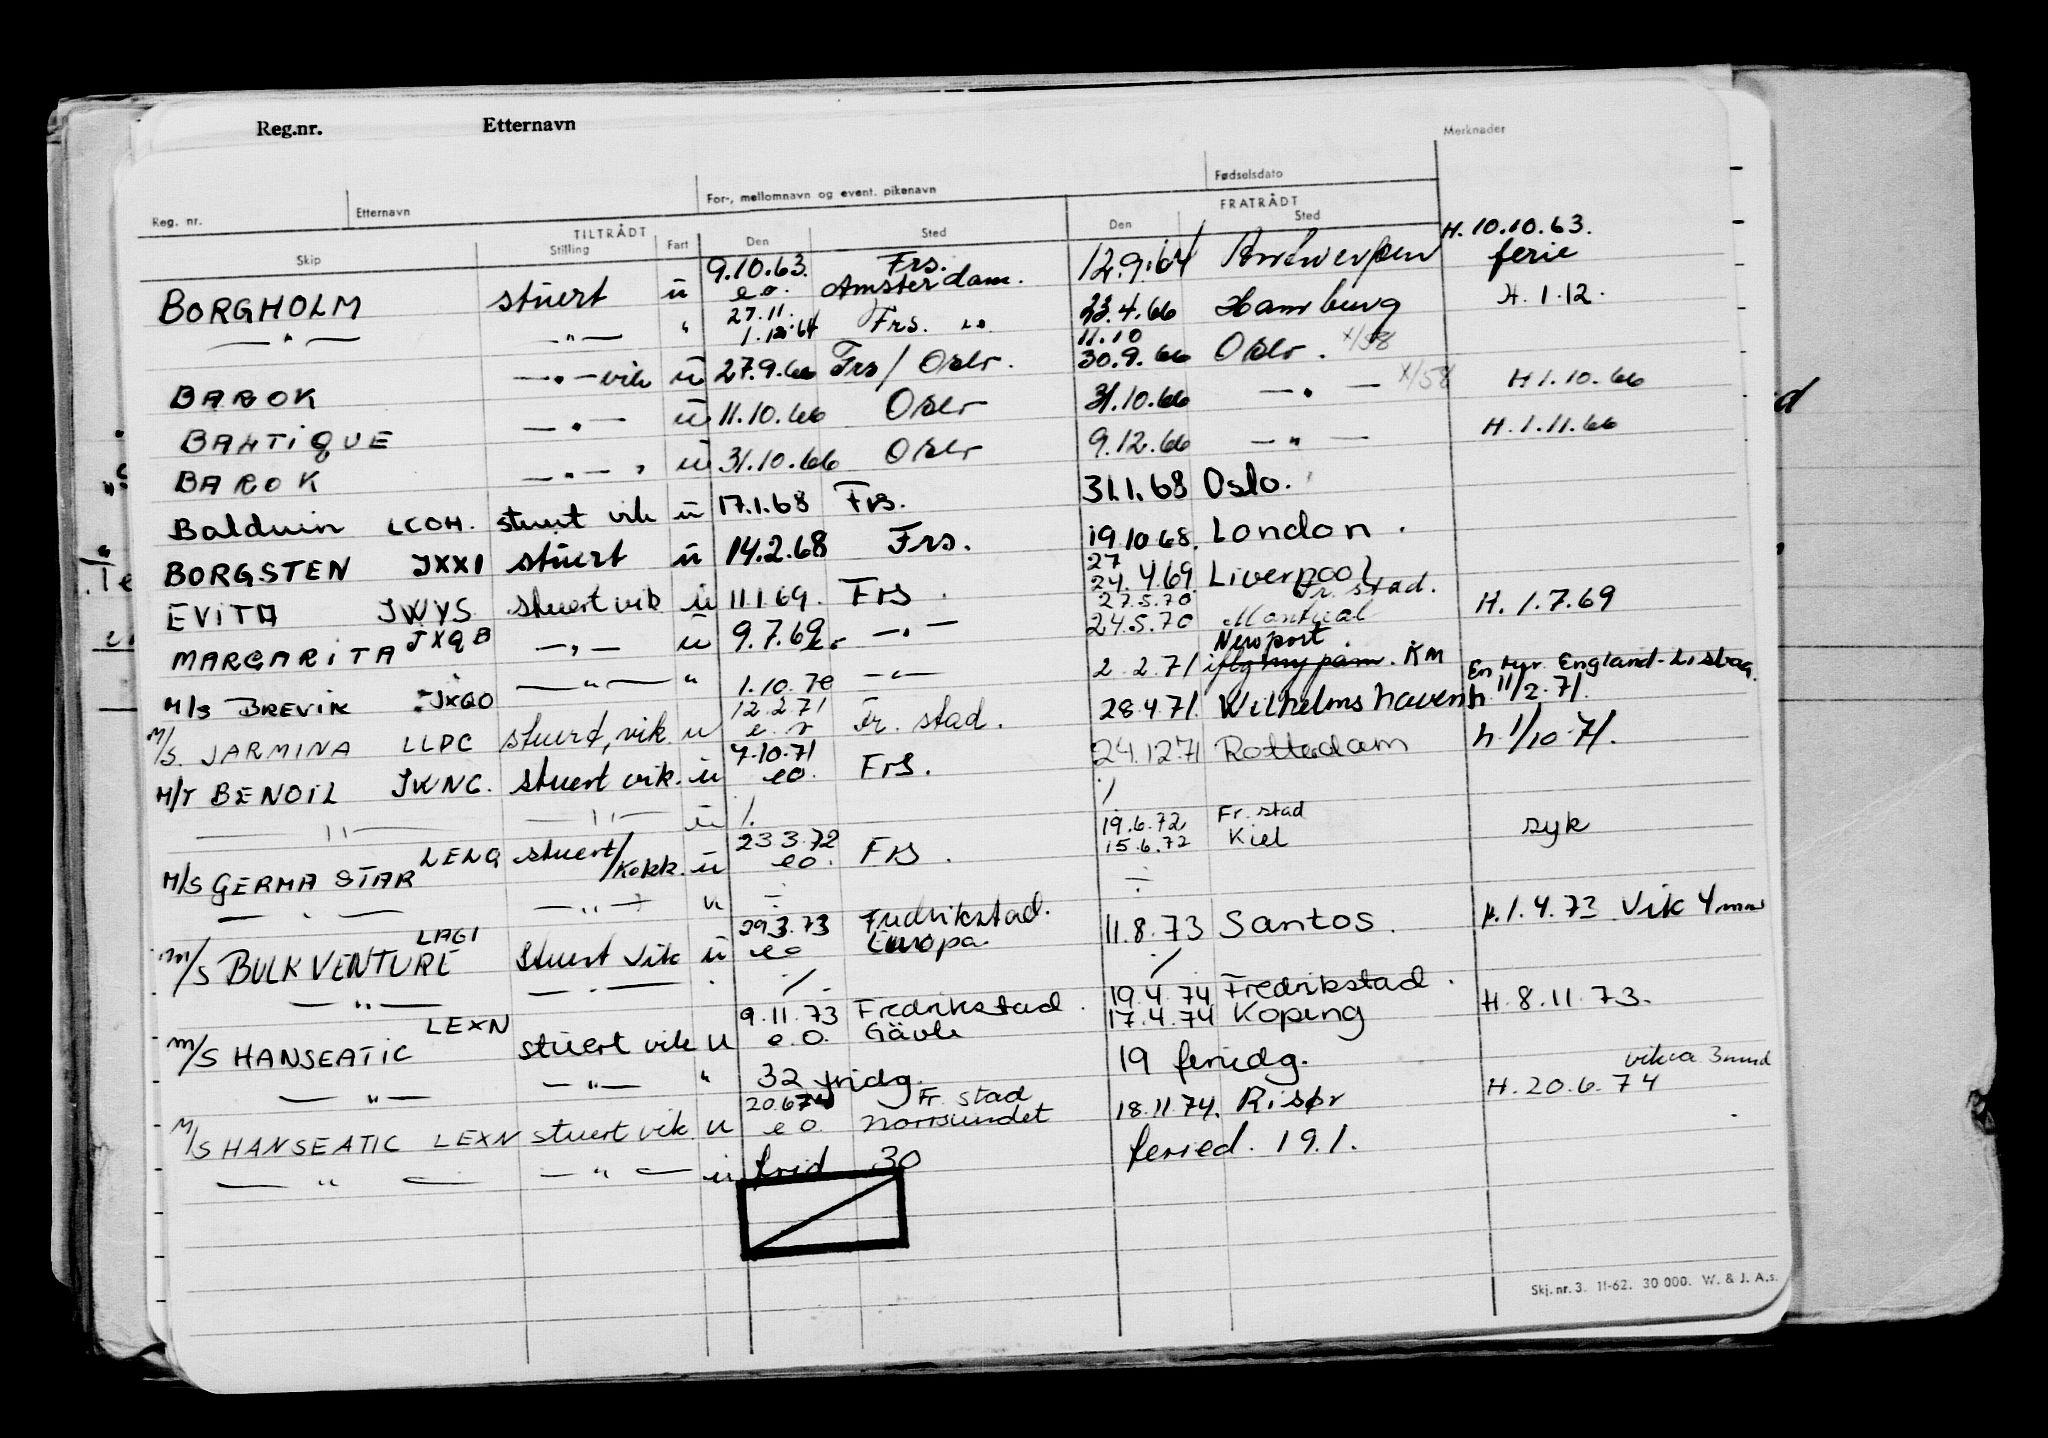 Reg.nr. Etternavn
Merknader
Fødselsdato
For-, mellomnavn og event. pikenavn
Reg. nr. Etternavn
TILTRÅDT FRATRÅDT
Skip Stilling Fart Den Sted Den Sted
H. 10.10.63.
BORGHOLM stuert u 9.10.63. e.o. Frs. Amsterdam. 12.9.64 Antwerpen ferie
— " — — " — " 27.11. 1.12.64 Frs. 23.4.66 Hamburg H. 1.12.
BAROK — " — vik u 27.9.66 Frs / Oslo. 11.10 30.9.66 Oslo. x/58
BANTIQUE — " — u 11.10.66 Oslo 31.10.66 — " — x/58 H 1.10.66
BAROK — " — u 31.10.66 Oslo 9.12.66 — " — H. 1.11.66
Balduin LCOH. stuert vik u 17.1.68 Frs. 31.1.68 Oslo.
BORGSTEN JXXI stuert u 14.2.68 Frs. 19.10.68. London.
EVITA JWYS stuert vik u 11.1.69. Frs. 27 24.4.69 Liverpool
MARGARITA JXQB — " — u 9.7.69 — " — 27.5.70 24.5.70 Fr. stad. Montreal H. 1.7.69
M/S BREVIK JXGO — " — " 1.10.70 — " — 2.2.71 Newport. KM En tur England-Lisboa.
M/S. JARMINA LLPC stuert, vik u 12.2.71 Fr. stad. 28.4.71. Wilhelmshaven h 11/2.71.
M/T BENOIL JKNC. stuert vik. u 7.10.71 eo. Frs. 24.12.71 Rotterdam h. 1/10-71.
— " — — " — u /. /
M/S GERMA STAR LENQ stuert/Kokk. u 23.3.72 eo. Frs. 19.6.72 15.6.72 Fr. stad Kiel syk
— " — — " — u ÷ ÷
M/S BULK VENTURE LAGI Stuert Vik u 29.3.73 eo Fredrikstad. Europa. 11.8.73 Santos. H. 1.4.73 Vik 4 mnd
— " — — " — " ./. ./
M/S HANSEATIC LEXN stuert vik u 9.11.73 e.o. Fredrikstad. Gävle 19.4.74 17.4.74 Fredrikstad. Köping H. 8.11.73.
— " — — " — " 32 fridg. 19 feriedg.
M/S HANSEATIC LEXN stuert vik. u 20.6.74 e o. Fr. stad Norrsundet 18.11.74. Risør H. 20.6.74 vikca 3 mnd
— " — — " — u frid 30 feried. 19.1.
Skj. nr. 3. 11-62. 30 000. W. & J. A.s.